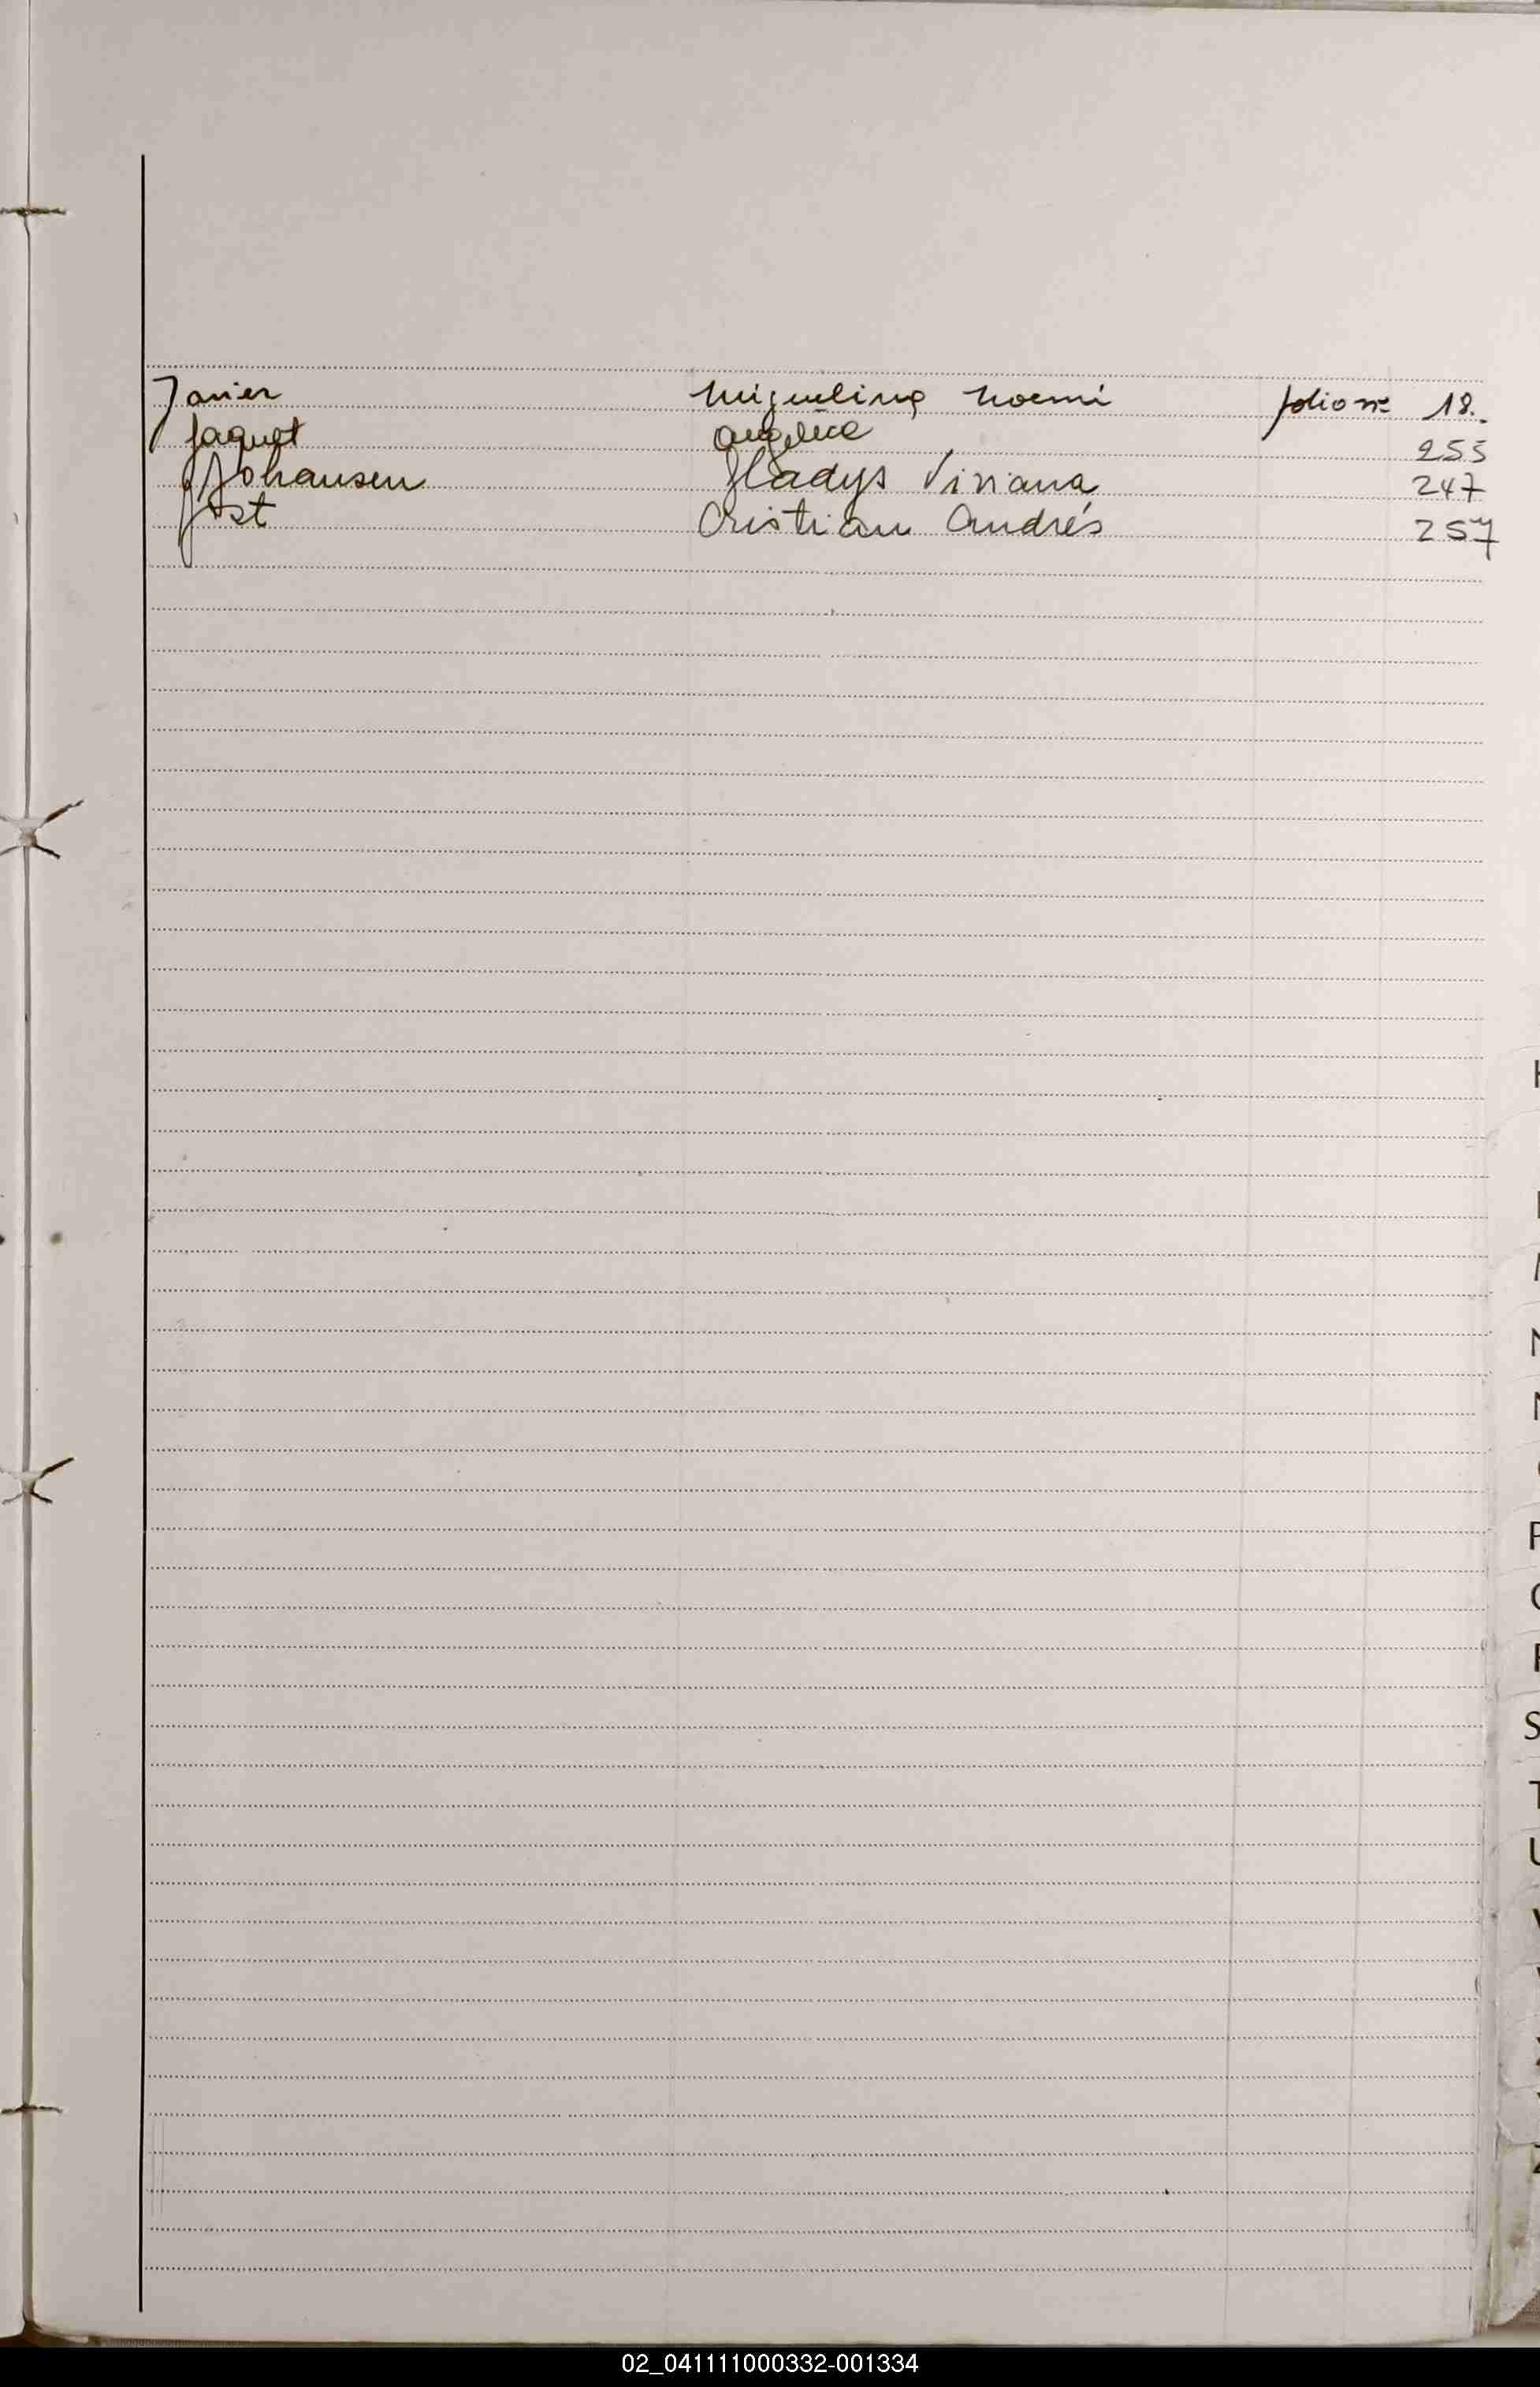 Javier Miguelina Noemi folio nº 18.
Jaquet Angélica 253
Johansen Gladys Viviana 247
Jost Cristian Andrés 257
H
M
N
P
Q
R
S
T
U
V
Z
02_041111000332-001334